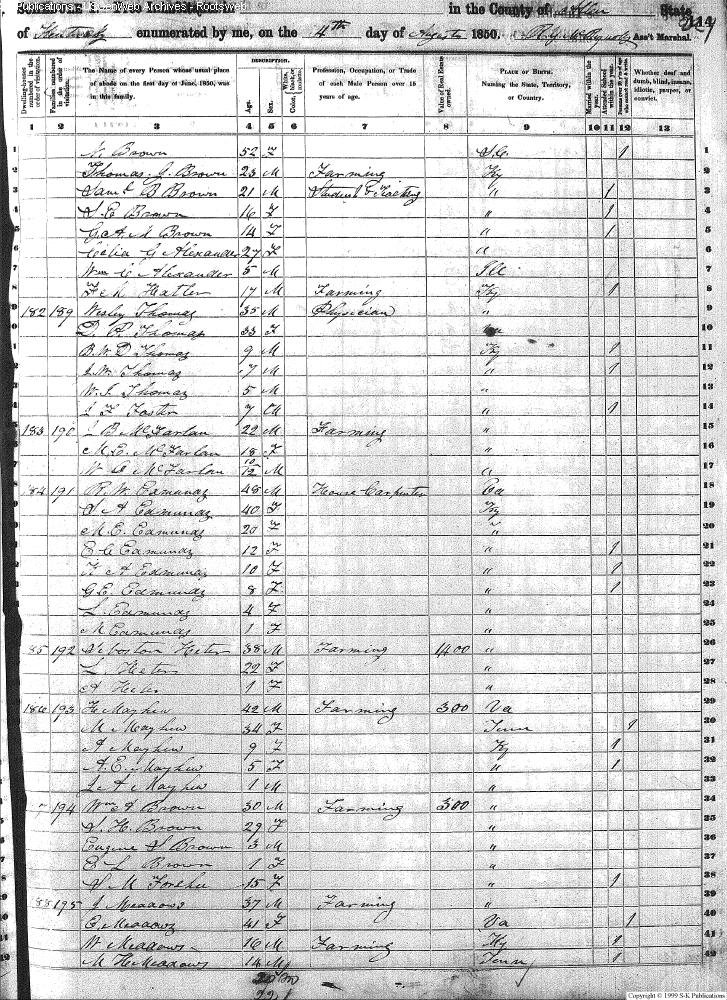 Publications - USGenWeb Archives - Rootsweb
in the County of Allen State
of Kentucky enumerated by me, on the 4th day of August 1850. Ass't Marshal.
DESCRIPTION.
Dwelling-houses numbered in the order of visitation.
Families numbered in the order of visitation.
The Name of every Person whose usual place of abode on the first day of June, 1850, was in this family.
Age.
Sex.
White, black, or mulatto.
Color,
Profession, Occupation, or Trade of each Male Person over 15 years of age.
Value of Real Estate owned.
PLACE OF BIRTH. Naming the State, Territory, or Country.
Married within the year.
Attended School within the year.
Whether deaf and dumb, blind, insane, idiotic, pauper, or convict.
1 2 3 4 5 6 7 8 9 10 11 12 13
1 N. Brown 52 F S.C. 1 1
2 Thomas J. Brown 23 M Farming Ky 2
3 Saml B Brown 21 M Student " 1 3
4 S. E Brown 16 F " 1 4
5 G. A. M Brown 14 F " 1 5
6 Celia G Alexander 27 F " 6
7 Wm C Alexander 5 M Ill 7
8 17 M Farming Ky 1 8
9 182 189 Wesley Thomas 35 M Physician " 9
10 Thomas 33 F 10
11 B. W. D Thomas 9 M Ky 1 11
12 J. W. Thomas 7 M " 1 12
13 W. J. Thomas 5 M " 13
14 J F Foster 7 M " 1 14
15 183 190 J B McFarlan 22 M Farming " 15
16 M. E. McFarlan 18 F " 16
17 W C McFarlan 10/12 M " 17
18 184 191 R. W. Edmunds 48 M House Carpenter Va 18
19 S A Edmunds 40 F Ky 19
20 M. E. Edmunds 20 F " 20
21 E C Edmunds 12 F " 1 21
22 A Edmunds 10 F " 1 22
23 G. E. Edmunds 8 F " 1 23
24 L. Edmunds 4 F " 24
25 M Edmunds 1 F " 25
26 85 192 Seboston Heter 38 M Farming 1400 " 26
27 L. Heter 22 F " 27
28 A Heter 1 F " 28
29 186 193 H Mayhew 42 M Farming 300 Va 29
30 M Mayhew 34 F Tenn 1 30
31 A Mayhew 9 F Ky 1 31
32 A. E. Mayhew 5 F " 1 32
33 L A Mayhew 1 M " 33
34 " 194 Wm A Brown 30 M Farming 300 " 34
35 S. H. Brown 29 F " 35
36 Eugene S Brown 3 M " 36
37 E L Brown 1 F " 37
38 S M 15 F " 1 38
39 88 195 J Meadows 37 M Farming " 39
40 E. Meadows 41 F Va 1 40
41 W Meadows 16 M Farming Ky 1 41
42 M H Meadows 14 M Tenn 1 42
Copyright © 1999 S-K Publications